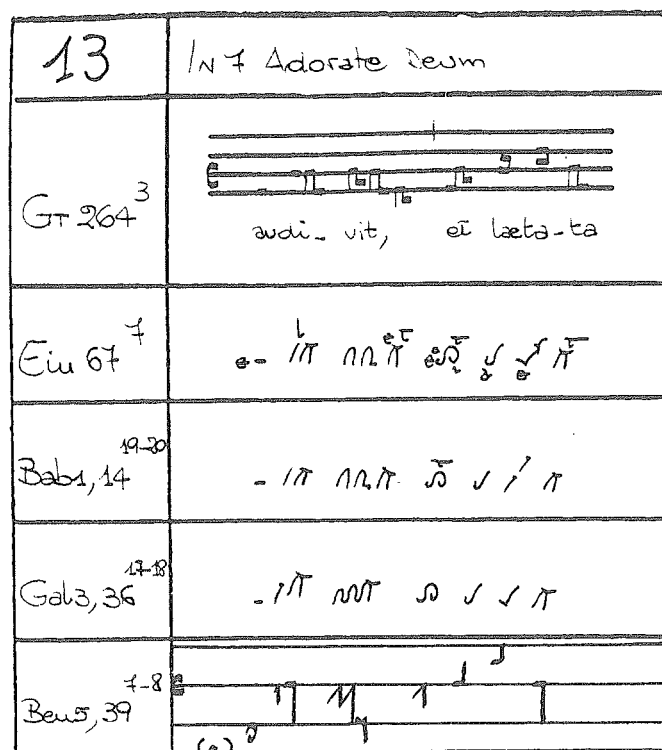 13
IN 7 Adorate Deum
GT 264 3
audi-vit, et laeta-ta
Ein 67 7
Bab1, 14 19-20
Gal3, 36 17-18
Ben5, 39 7-8
(a)